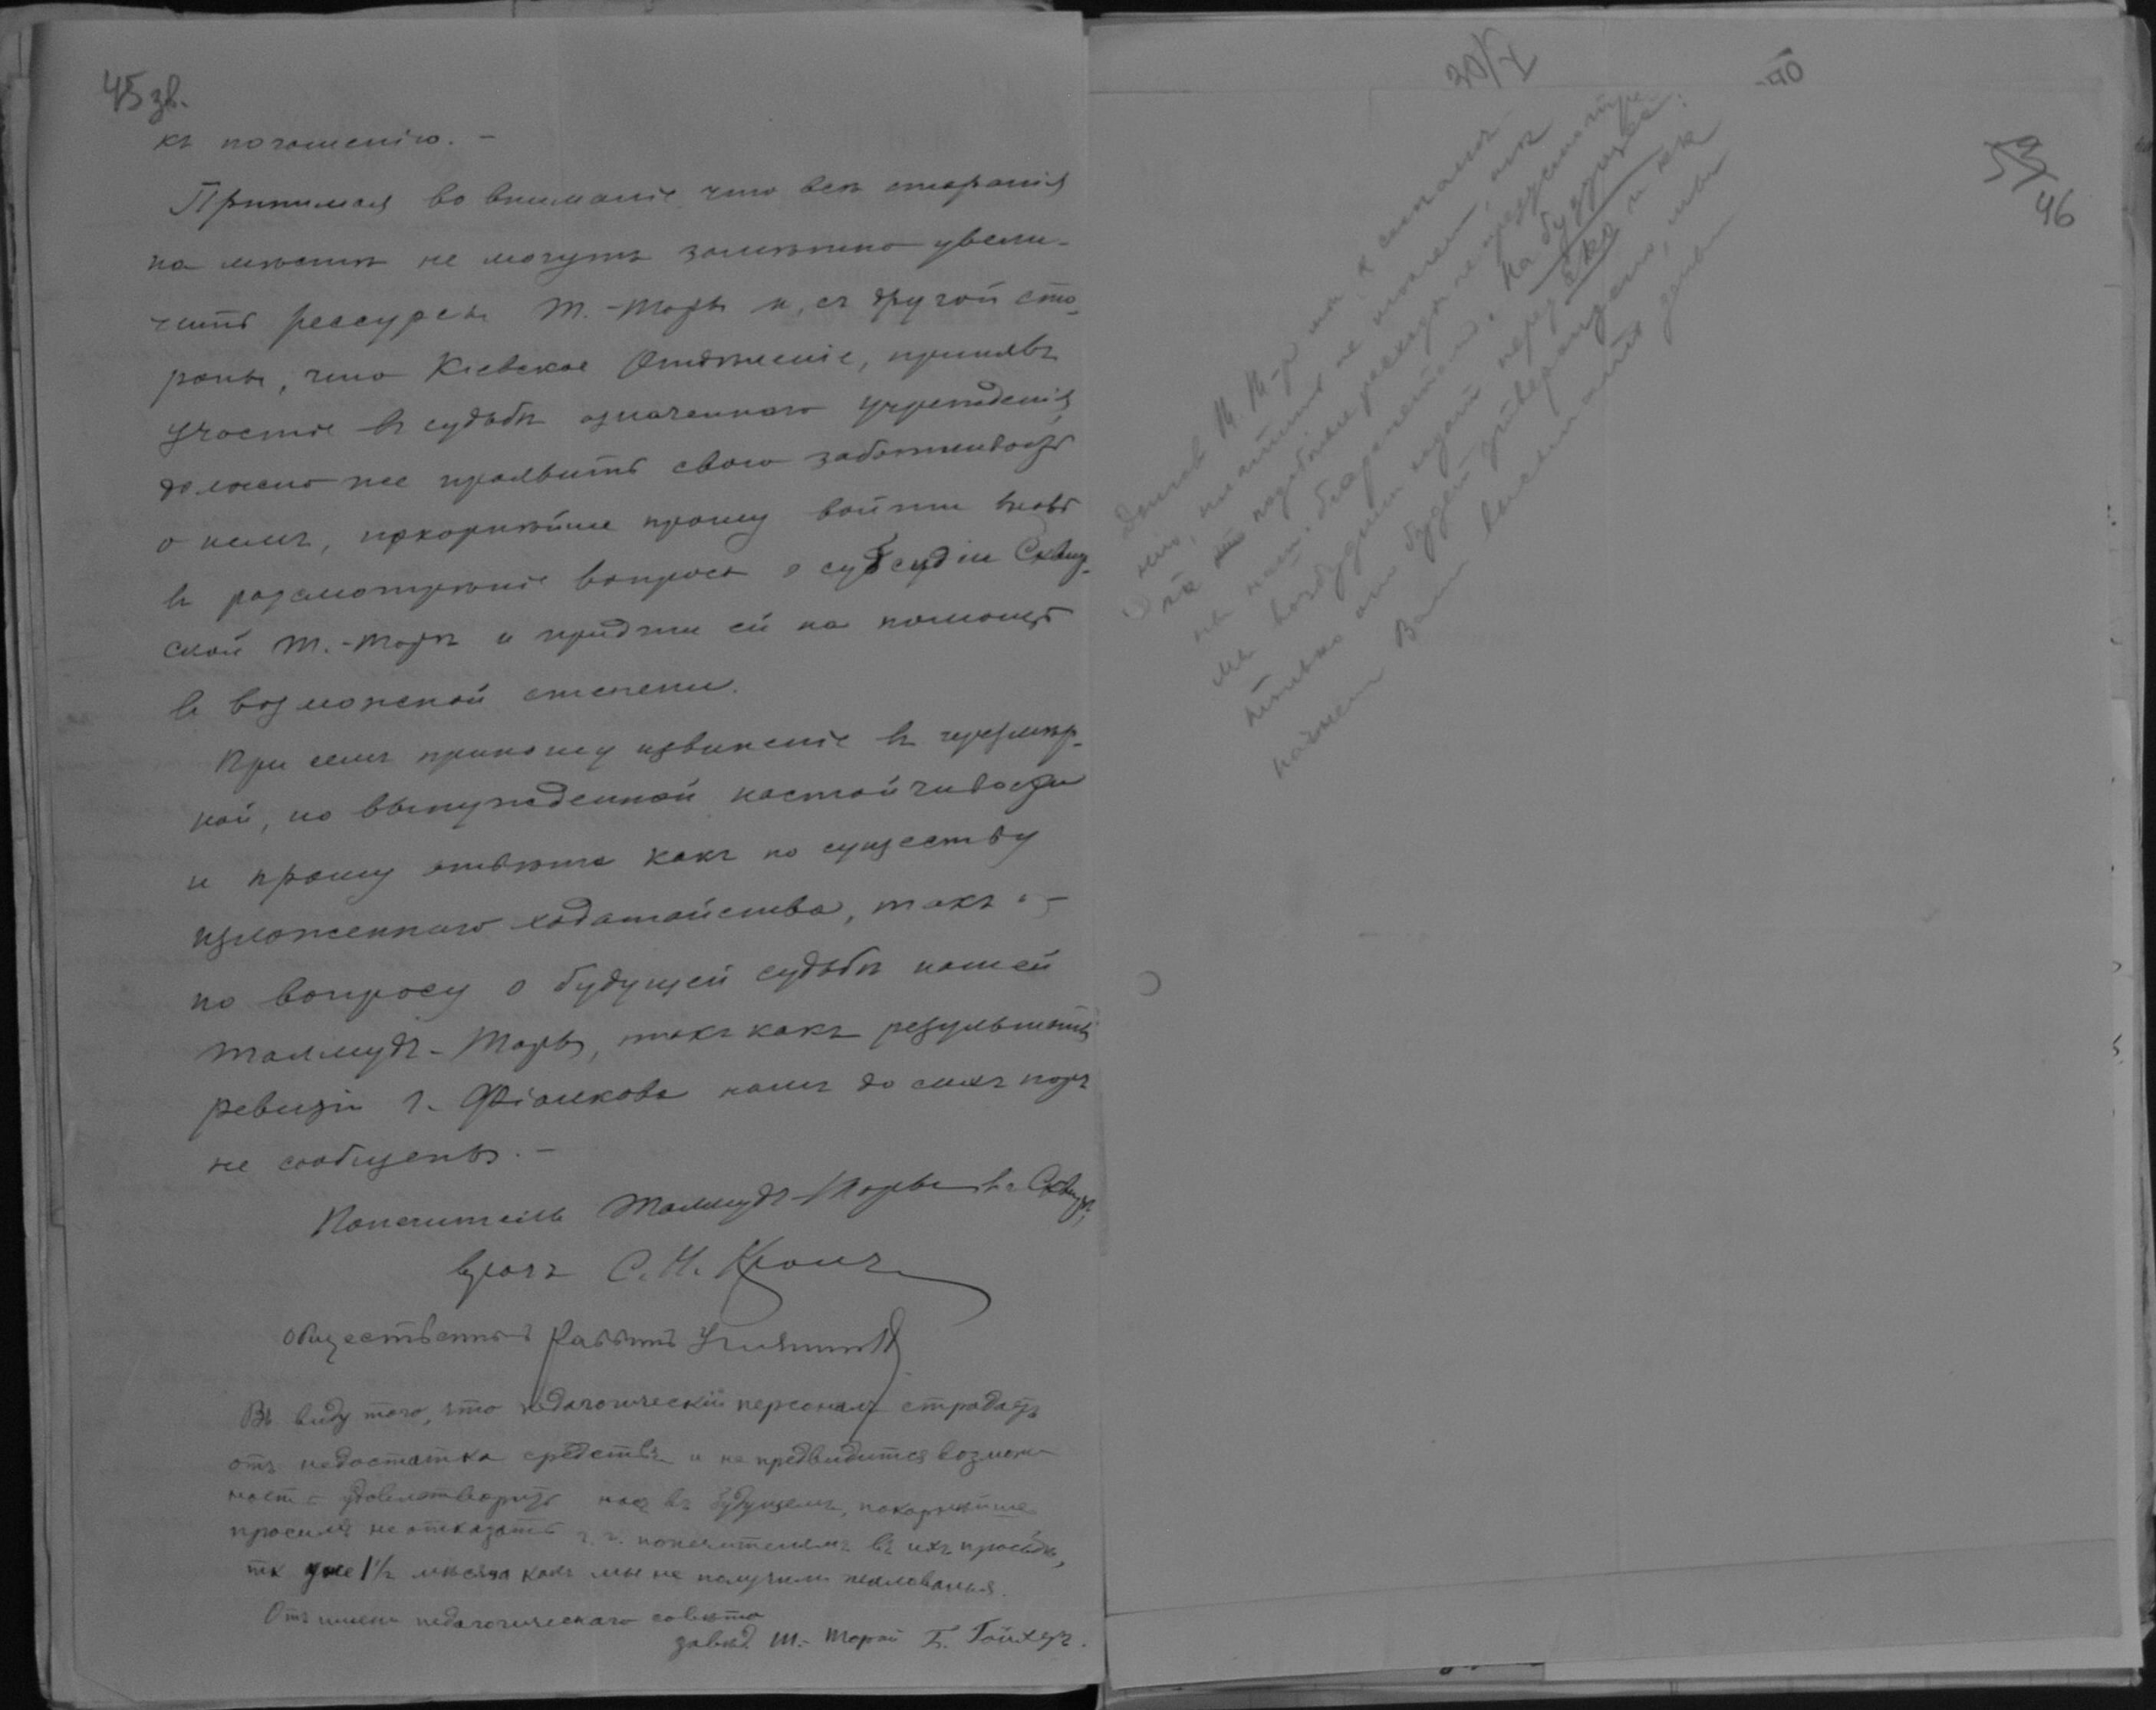 45 зв.
къ погашенію. –
Принимая во вниманіе что всѣ старанія
на мѣстѣ не могутъ замѣтно увели-
чить рессурсы Т.-Торы и, съ другой сто-
роны, что Кіевское Отдѣленіе, принявъ
участіе въ судьбѣ означеннаго учрежденія,
должно же проявить свою заботливость
о немъ, покорнѣйше прошу войти вновь
въ разсмотрѣніе вопроса о субсудіи Сквир-
ской Т.-Торѣ и придти ей на помощь
въ возможной степени.
При семъ приношу извиненіе въ чрезмѣр-
ной, но вынужденной настойчивости
и прошу отвѣта какъ по существу
изложеннаго ходатайства, такъ и
по вопросу о будущей судьбѣ нашей
Талмудъ-Торы, такъ какъ результаты
ревизіи г. Фіалкова намъ до сихъ поръ
не сообщены. –
Попечитель Талмудъ-Торы въ Сквирѣ,
врачъ С. И.
Общественный Раввинъ
Въ виду того, что педагогическій персоналъ страдаетъ
отъ недостатка средствъ и не предвидится возмож-
ность удовлетворить насъ въ будущемъ, покорнѣйше
просимъ не отказать г. г. попечителямъ въ ихъ просьбѣ,
тк уже 1½ мѣсяца какъ мы не получили жалованья.
Отъ имени педагогическаго совѣта
завѣд. Т.-Торой Б.
30/X
40
53
46
Долгов Т. Т-р мы, к сожалѣ-
нію, платить не можем, ибо
на подобные расходы не предусмотре-
ны наш. бюджетом. На будущее
мы возбудим ходат. перед ЕКО и как
только он будет утвержден, мы
начнем Вам высылать деньги